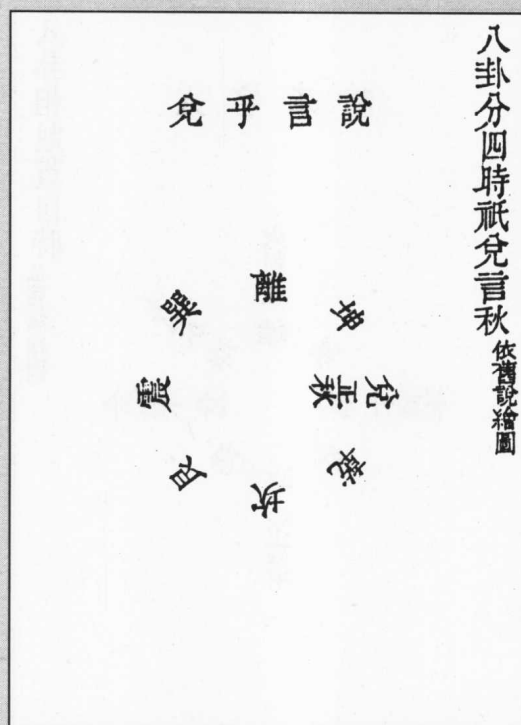 八卦分四時祇兌言秋依舊說繪圖
說言乎兌
離
坤
兌正秋
乾
坎
艮
震
巽